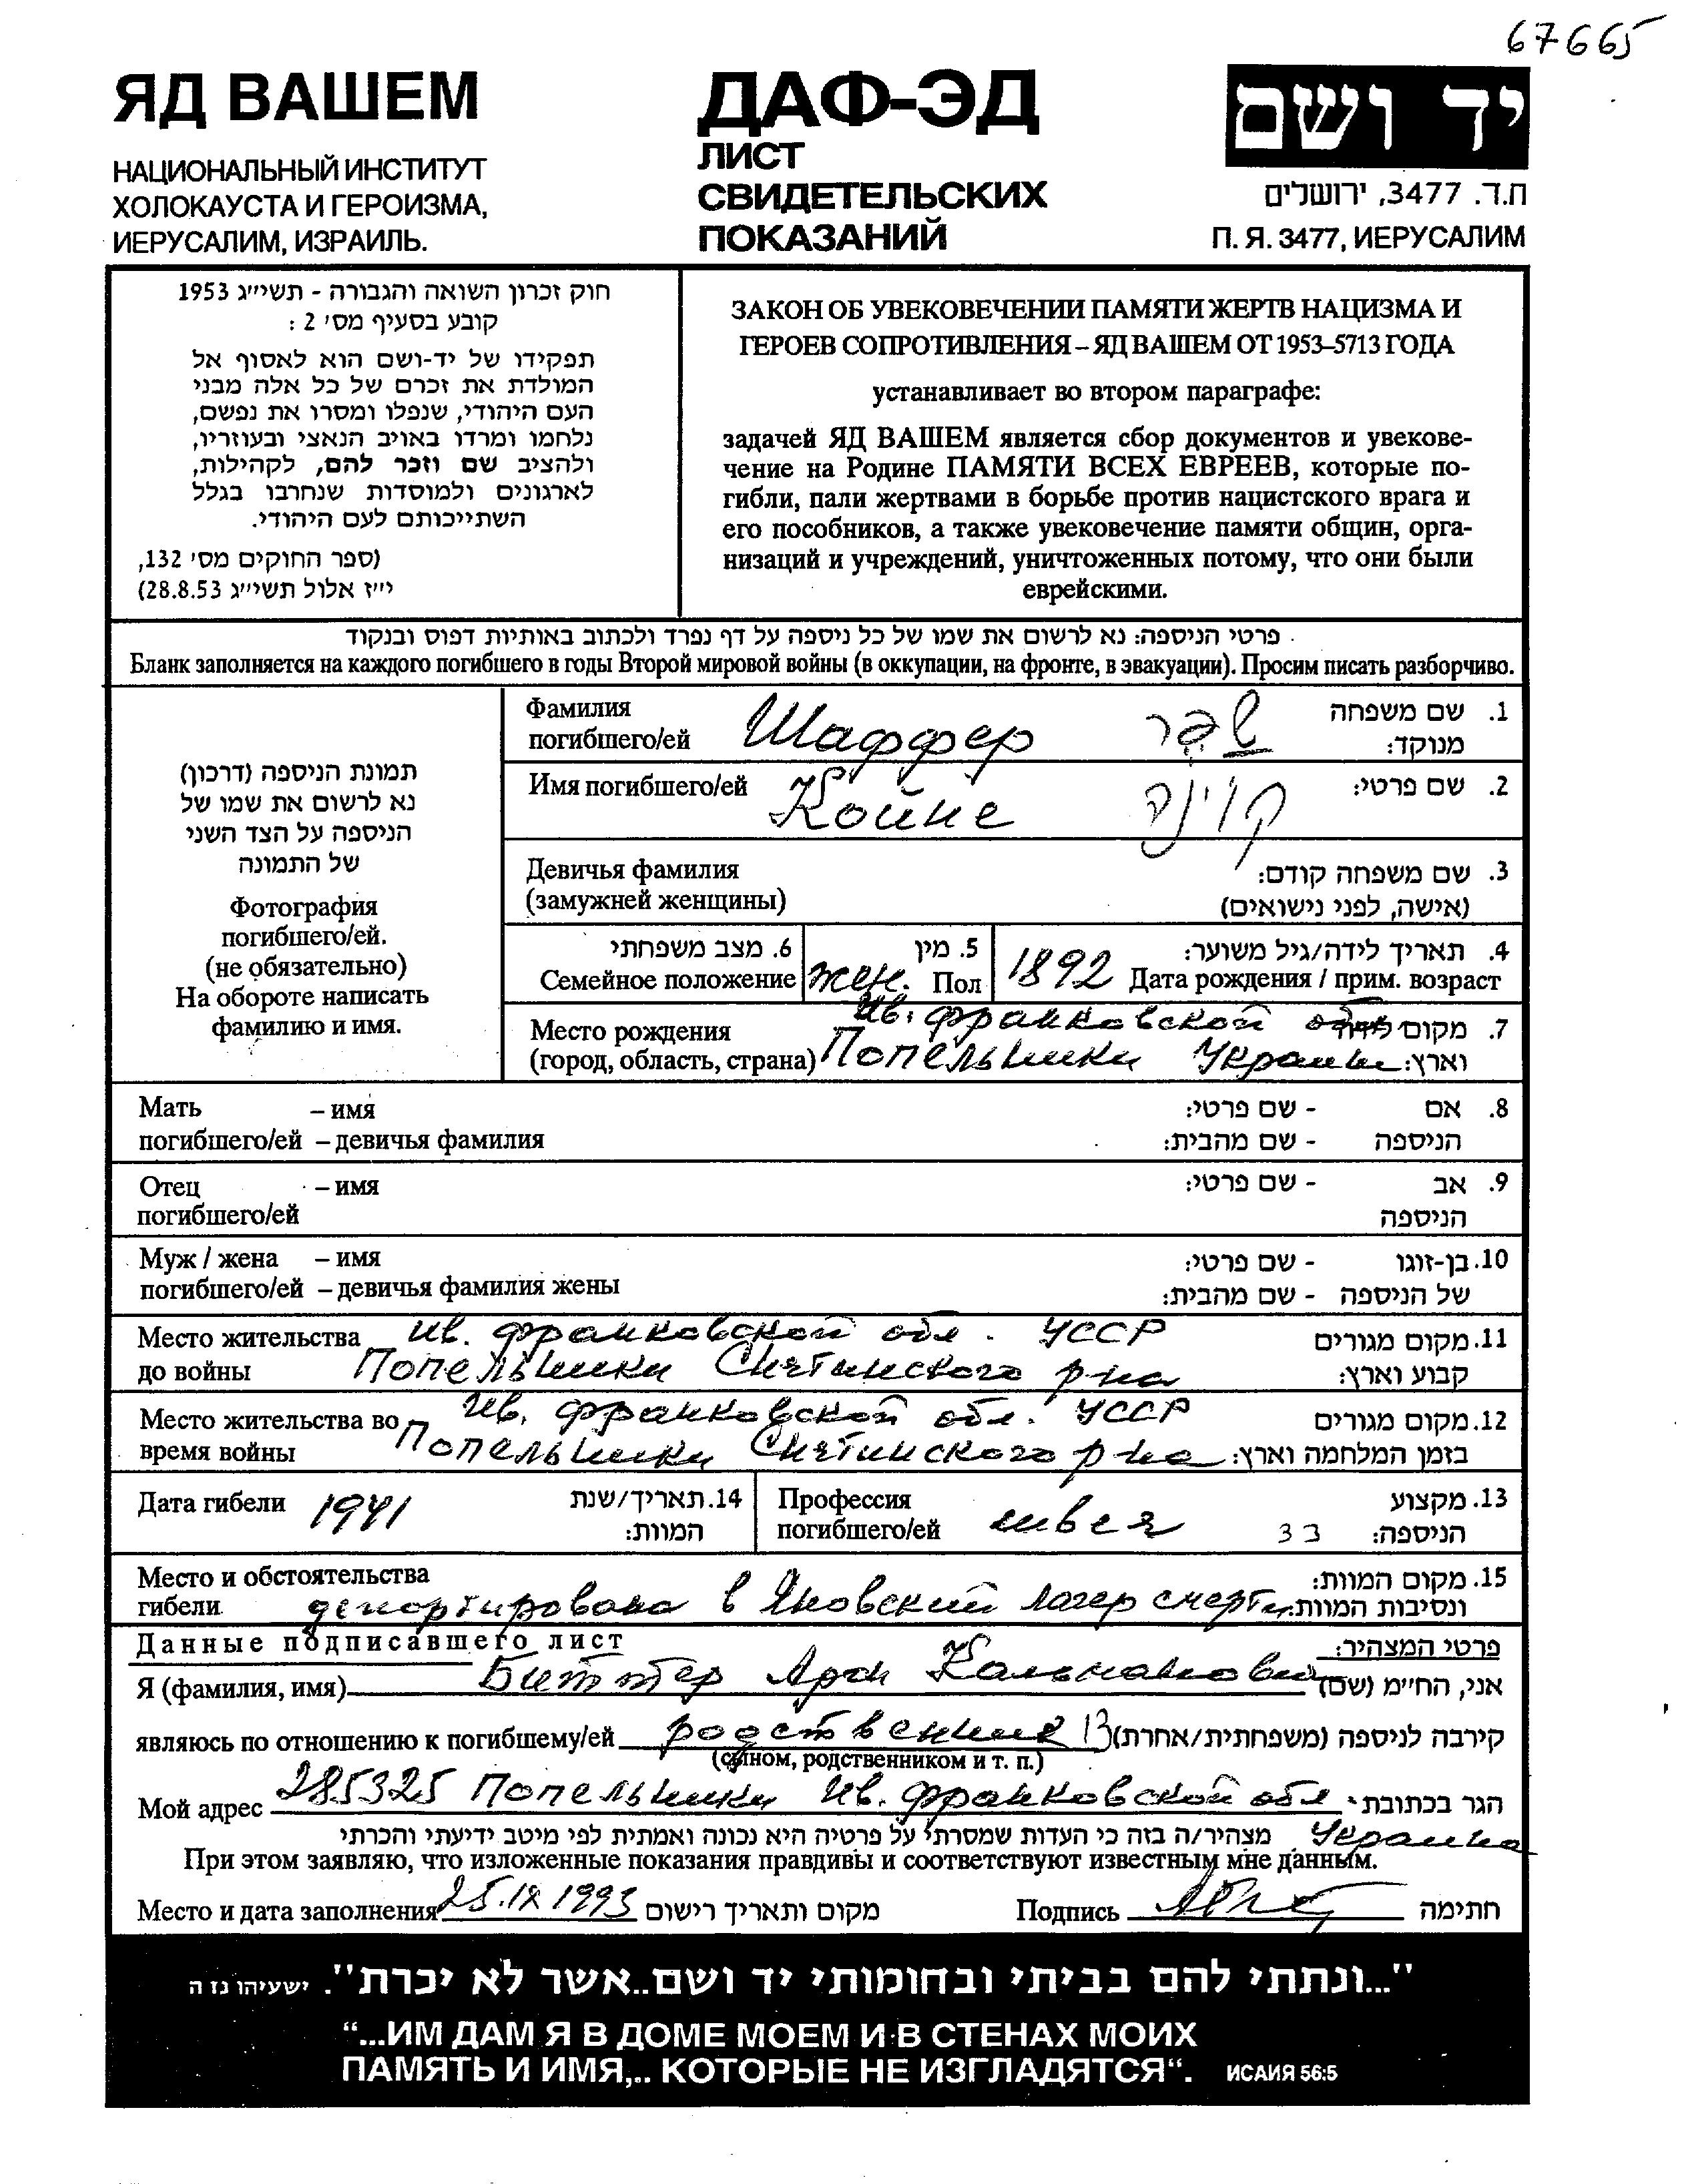 67665
ЯД ВАШЕМ
НАЦИОНАЛЬНЫЙ ИНСТИТУТ
ХОЛОКАУСТА И ГЕРОИЗМА,
ИЕРУСАЛИМ, ИЗРАИЛЬ.
ДАФ-ЭД
ЛИСТ
СВИДЕТЕЛЬСКИХ
ПОКАЗАНИЙ
יד ושם
ת.ד. 3477, ירושלים
П. Я. 3477, ИЕРУСАЛИМ
חוק זכרון השואה והגבורה - תשי״ג 1953
קובע בסעיף מס׳ 2 :
תפקידו של יד-ושם הוא לאסוף אל
המולדת את זכרם של כל אלה מבני
העם היהודי, שנפלו ומסרו את נפשם,
נלחמו ומרדו באויב הנאצי ובעוזריו,
ולהציב שם וזכר להם, לקהילות,
לארגונים ולמוסדות שנחרבו בגלל
השתייכותם לעם היהודי.
(ספר החוקים מס׳ 132,
י״ז אלול תשי״ג 28.8.53)
ЗАКОН ОБ УВЕКОВЕЧЕНИИ ПАМЯТИ ЖЕРТВ НАЦИЗМА И
ГЕРОЕВ СОПРОТИВЛЕНИЯ – ЯД ВАШЕМ ОТ 1953–5713 ГОДА
устанавливает во втором параграфе:
задачей ЯД ВАШЕМ является сбор документов и увекове-
чение на Родине ПАМЯТИ ВСЕХ ЕВРЕЕВ, которые по-
гибли, пали жертвами в борьбе против нацистского врага и
его пособников, а также увековечение памяти общин, орга-
низаций и учреждений, уничтоженных потому, что они были
еврейскими.
פרטי הניספה: נא לרשום את שמו של כל ניספה על דף נפרד ולכתוב באותיות דפוס ובנקוד
Бланк заполняется на каждого погибшего в годы Второй мировой войны (в оккупации, на фронте, в эвакуации). Просим писать разборчиво.
תמונת הניספה (דרכון)
נא לרשום את שמו של
הניספה על הצד השני
של התמונה
Фотография
погибшего/ей.
(не обязательно)
На обороте написать
фамилию и имя.
Фамилия
погибшего/ей Шаффер שפר 1. שם משפחה
מנוקד:
Имя погибшего/ей Койне קוינה 2. שם פרטי:
Девичья фамилия 3. שם משפחה קודם:
(замужней женщины) (אישה, לפני נישואים)
6. מצב משפחתי 5. מין 4. תאריך לידה/גיל משוער:
Семейное положение жен. Пол 1892 Дата рождения / прим. возраст
Место рождения Ив. франковской обл 7. מקום לידה
(город, область, страна) Попельники Украины וארץ:
Мать – имя 8. אם - שם פרטי:
погибшего/ей – девичья фамилия הניספה - שם מהבית:
Отец – имя 9. אב - שם פרטי:
погибшего/ей הניספה
Муж / жена – имя 10. בן-זוגו - שם פרטי:
погибшего/ей – девичья фамилия жены של הניספה - שם מהבית:
Место жительства Ив. франковской обл. УССР 11. מקום מגורים
до войны Попельники Снятинского р-на קבוע וארץ:
Место жительства во Ив. франковской обл. УССР 12. מקום מגורים
время войны Попельники Снятинского р-на בזמן המלחמה וארץ:
Дата гибели 1941 14. תאריך/שנת
המוות:
Профессия 13. מקצוע
погибшего/ей швея 33 הניספה:
Место и обстоятельства 15. מקום המוות:
гибели депортирована в Яновский лагер смерти ונסיבות המוות:
Данные подписавшего лист פרטי המצהיר:
Я (фамилия, имя) Биттер Арон Кальманович אני, החי״מ (שם)
являюсь по отношению к погибшему/ей родственник 13 קירבה לניספה (משפחתית/אחרת)
(сыном, родственником и т. п.)
Мой адрес 285325 Попельники Ив. франковской обл הגר בכתובת
Украина מצהיר/ה בזה כי העדות שמסרתי על פרטיה היא נכונה ואמתית לפי מיטב ידיעתי והכרתי
При этом заявляю, что изложенные показания правдивы и соответствуют известным мне данным.
Место и дата заполнения 25.IX 1993 מקום ותאריך רישום Подпись חתימה
"...ונתתי להם בביתי ובחומותי יד ושם..אשר לא יכרת". ישעיהו נז ה
“...ИМ ДАМ Я В ДОМЕ МОЕМ И В СТЕНАХ МОИХ
ПАМЯТЬ И ИМЯ,.. КОТОРЫЕ НЕ ИЗГЛАДЯТСЯ“. ИСАИЯ 56:5